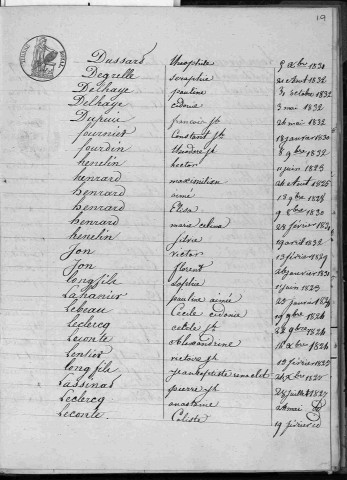 19
Dussard Théophile 9 Xbre 1831
Degrelle Seraphie 21 aout 1832
Delhaye pauline 31 octobre 1832
Delhaye cidonie 3 mai 1832
Dupuis francois 24 mai 1832
fournier Constant 18 janvier 1830
fourdin Théodore 8 9bre 1832
henelin hector 11 juin 1823
henrard maximilien 26 aout 1825
henrard aimé 18 9bre 1828
henrard Elisa 9 8bre 1830
henrard marie celina 28 février 1824
henelin silvie 19 avril 1832
Jon victor 13 février 1829
Jon florent 26 janvier 1831
longfile Sophie 1 juin 1823
Lahanier pauline aimée 25 janvier 1824
Lebeau Cécile cidonie 19 9bre 1824
Leclercq 22 9bre 1824
Leconte Alexandrine 18 Xbre 1824
Lentier 19 février 1825
longfile jean baptiste 24 Xbre 1825
Lassinat pierre 28 juillet 1827
Leclercq anastasie 24 mai
Leconte Caliste 19 février id